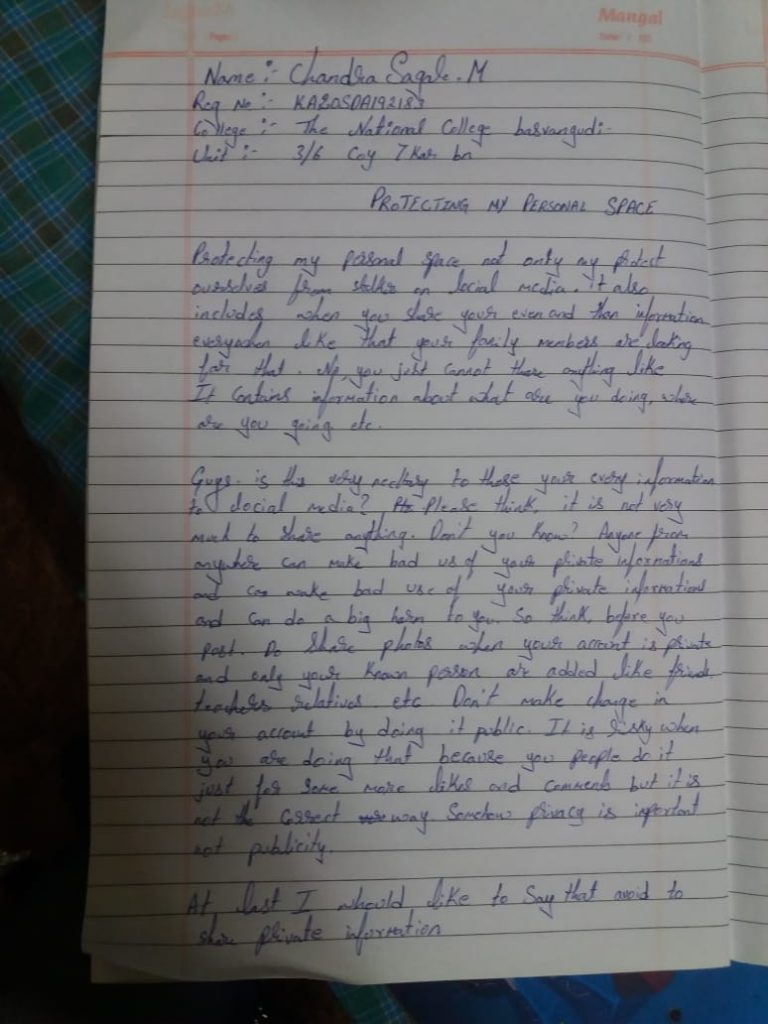 Mangal
Page:
Date:
Name :- Chandra Sagar. M
Reg No :- KA20SDA192183
College :- The National College basvangudi-
Unit :- 3/6 Coy 7 Kar bn
PROTECTING MY PERSONAL SPACE
Protecting my personal space not only my protect
ourselves from stalks on social media. it also
includes when you share your even and than information
everywhen like that your family members are looking
for that. No, you just cannot there anything like
It contains information about what are you doing, where
are you going etc.
Guys. is this very to those your every information
to social media? Please think, it is not very
much to share anything. Don't you know? Anyone from
anywhere can make bad us of your private informations
and can make bad use of your private informations
and can do a big harm to you. So think, before you
post. Do share photos when your account is private
and only your known person are added like friends,
teachers relatives. etc. Don't make change in
your account by doing it public. It is risky when
you are doing that because you people do it
just for some more likes and comments but it is
not the correct way. Somehow privacy is important
not publicity.
At last I whould like to Say that avoid to
share private information